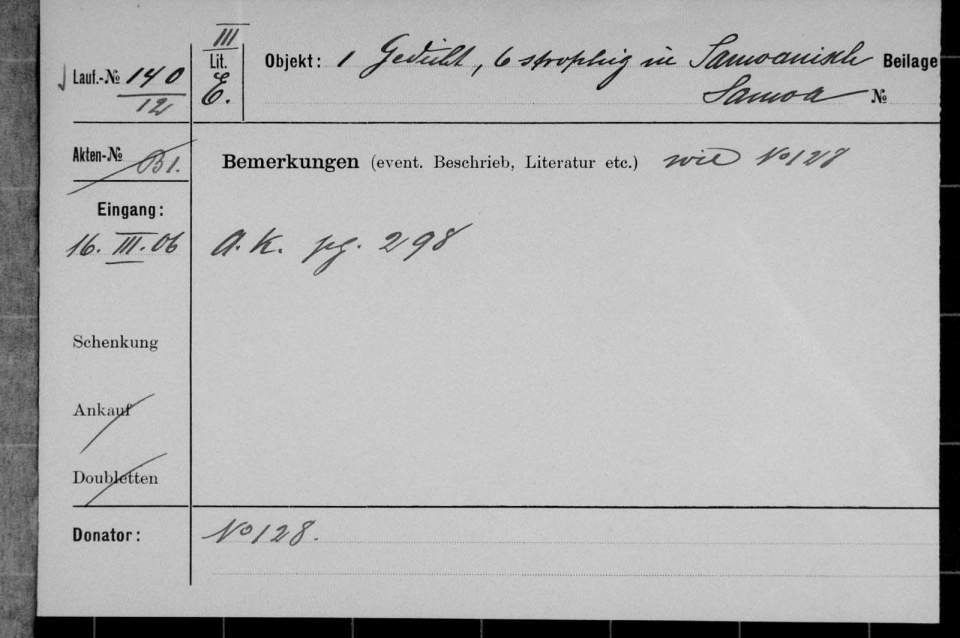 III
Lauf.-№ 140 Lit. Objekt: 1 Gedicht, 6 strophig in Samoanisch Beilage
12 E. Samoa №
Akten-№ B1. Bemerkungen (event. Beschrieb, Literatur etc.) wie No 128
Eingang:
16. III. 06 A. K. pg. 298
Schenkung
Ankauf
Doubletten
Donator: No 128.